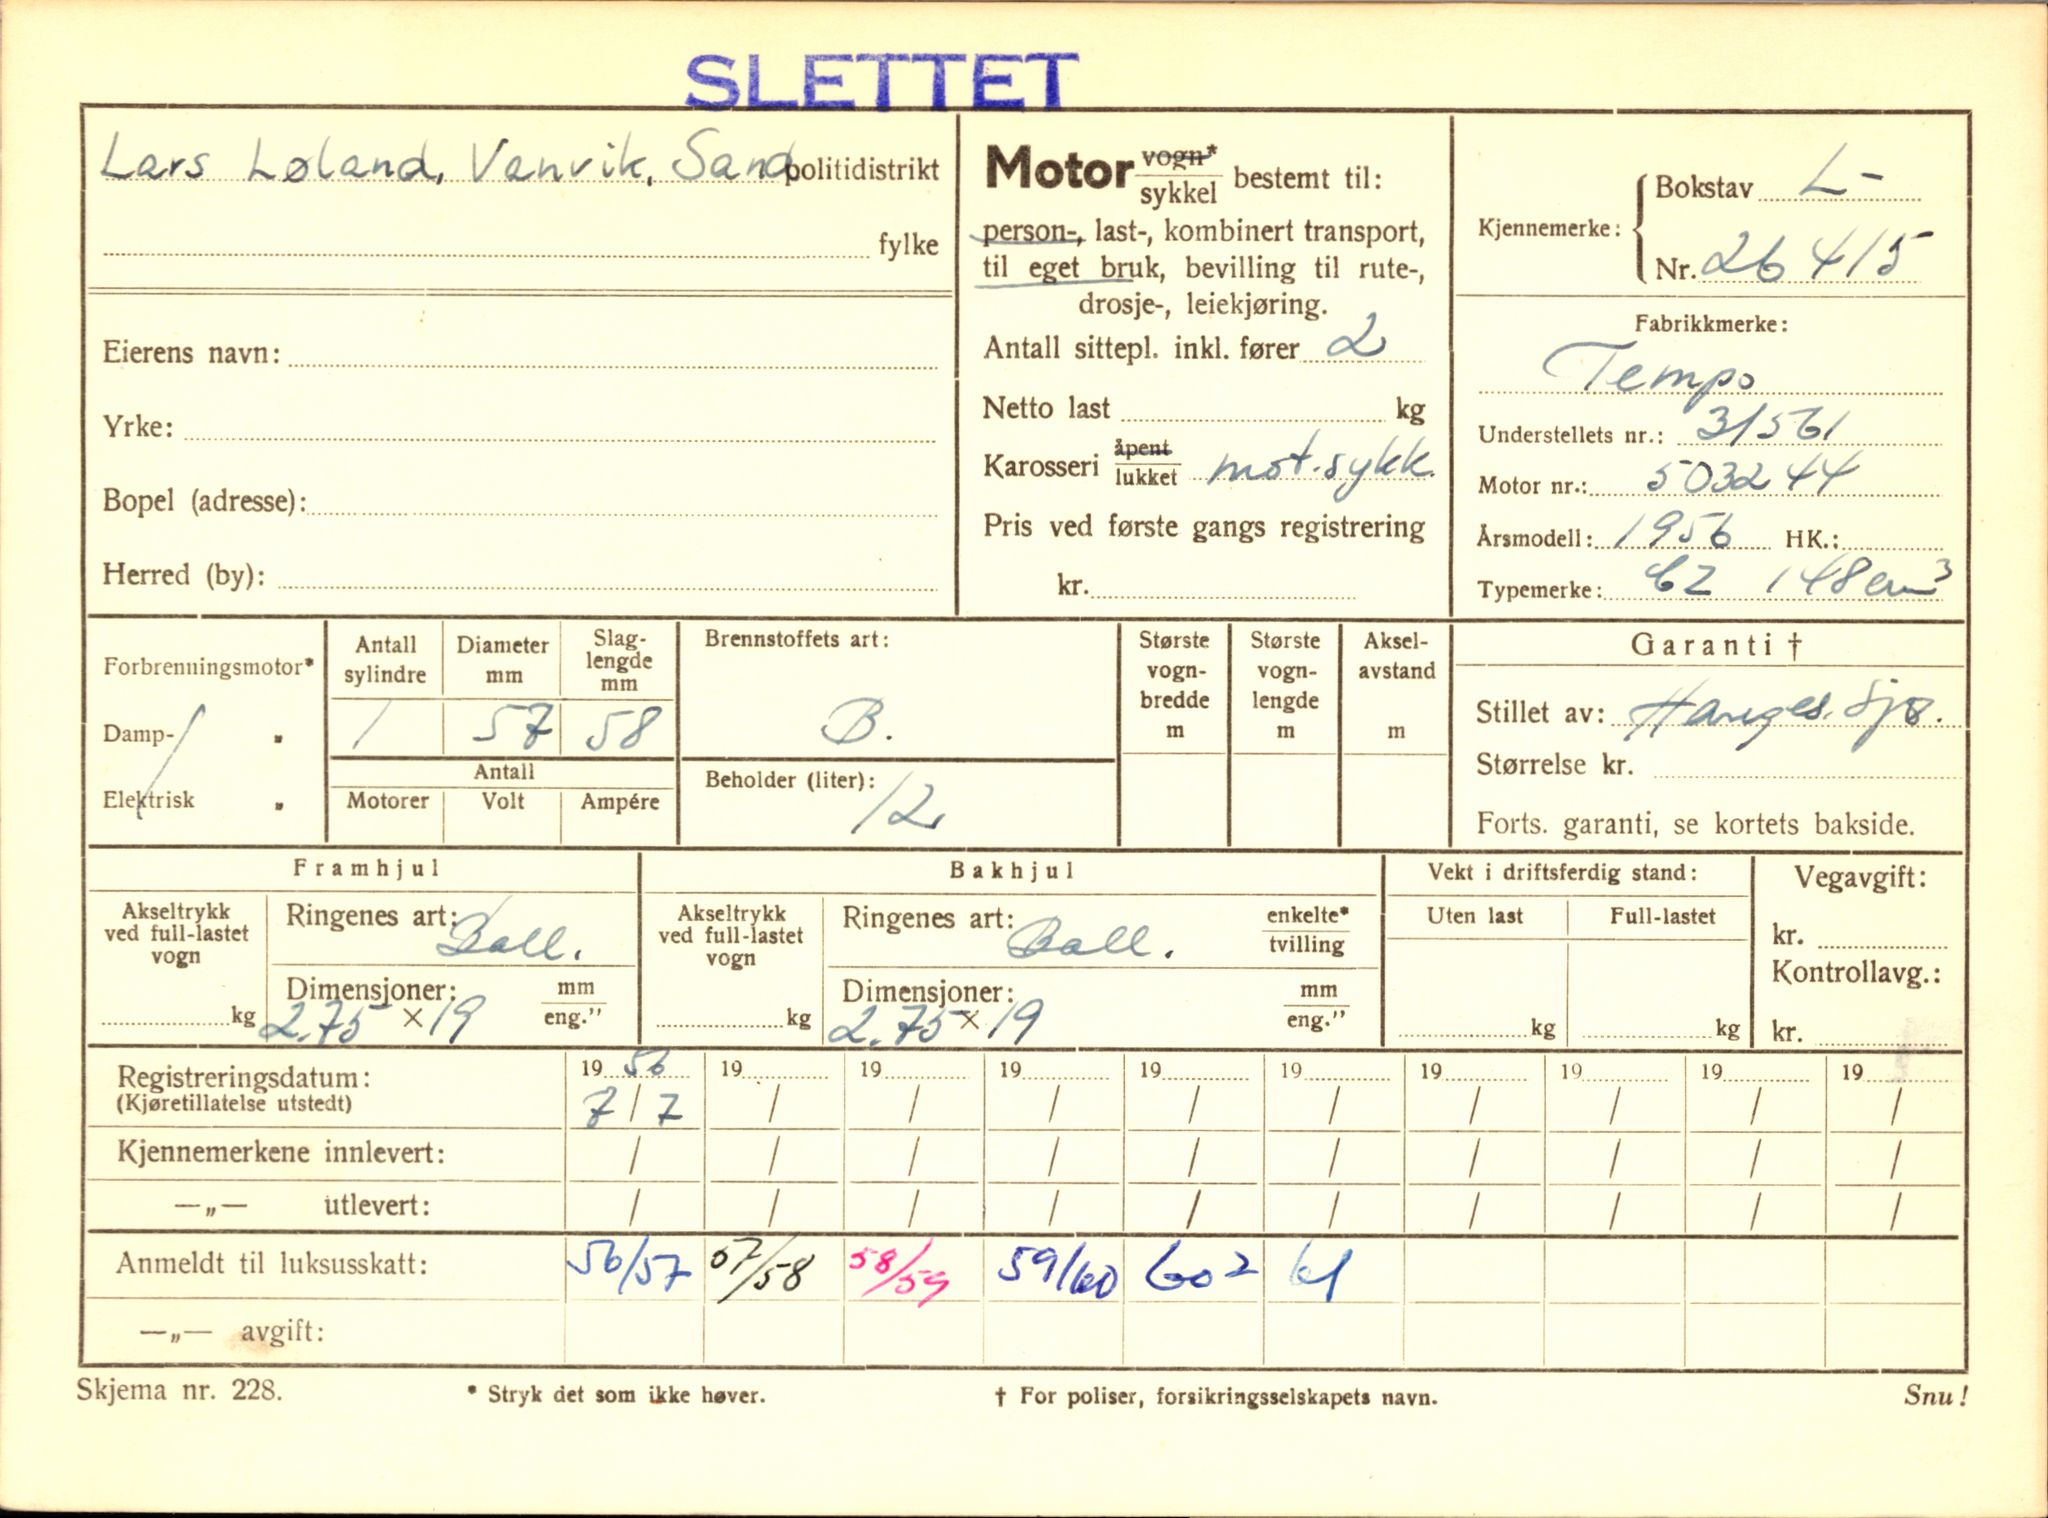 SLETTET
Lars Løland, Vanvik, Sand politidistrikt
fylke
Eierens navn:
Yrke:
Bopel (adresse):
Herred (by):
Motor vogn* / sykkel bestemt til:
person-, last-, kombinert transport,
til eget bruk, bevilling til rute-,
drosje-, leiekjøring.
Antall sittepl. inkl. fører 2
Netto last kg
Karosseri åpent / lukket mot.sykk.
Pris ved første gangs registrering
kr.
Kjennemerke: Bokstav L-
Nr. 26415
Fabrikkmerke:
Tempo
Understellets nr.: 31561
Motor nr.: 5032244
Årsmodell: 1956 HK.:
Typemerke: 148 cm3
Forbrenningsmotor*
Damp- „
Elektrisk „
Antall sylindre
1
Diameter mm
57
Slag-lengde mm
58
Antall
Motorer Volt Ampére
Brennstoffets art:
B.
Beholder (liter):
12
Største vogn-bredde m
Største vogn-lengde m
Aksel-avstand m
Garanti †
Stillet av: Sjø.
Størrelse kr.
Forts. garanti, se kortets bakside.
Framhjul
Akseltrykk ved full-lastet vogn
kg
Ringenes art: Ball.
Dimensjoner: mm / eng."
2.75 × 19
Bakhjul
Akseltrykk ved full-lastet vogn
kg
Ringenes art: Ball. enkelte* / tvilling
Dimensjoner: mm / eng."
2.75 × 19
Vekt i driftsferdig stand:
Uten last Full-lastet
kg kg
Vegavgift:
kr.
Kontrollavg.:
kr.
Registreringsdatum: 19 56 19 19 19 19 19 19 19 19 19
(Kjøretillatelse utstedt) 7/7 / / / / / / / / /
Kjennemerkene innlevert: / / / / / / / / / /
—„— utlevert: / / / / / / / / / /
Anmeldt til luksusskatt: 56/57 57/58 58/59 59/60 60² 61
—„— avgift:
Skjema nr. 228. * Stryk det som ikke høver. † For poliser, forsikringsselskapets navn. Snu!